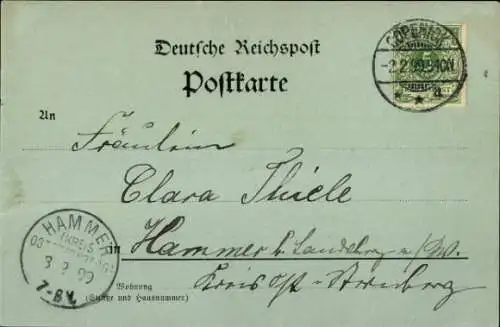 Deutsche Reichspost
Postkarte
COPENICK
-2.2.99.9-10N.
* * a.
An
Fräulein
Clara Thiele
in Hammer b. Landsberg a/W.
Kreis Ost-Sternberg
Wohnung
(Straße und Hausnummer)
HAMMER
(KREIS
3 2 99
7-8V.